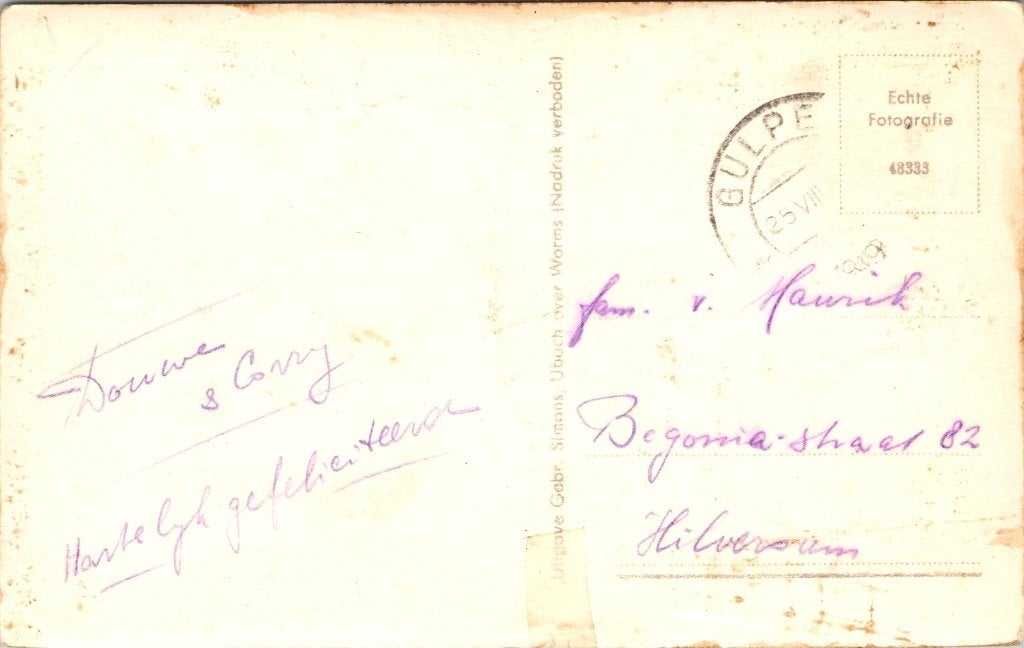 Douwe
& Corry
Hartelijk gefeliciteerd
Uitgave Gebr. Simons Ubach over Worms (Nadruk verboden)
GULPE
25 VIII
Echte
Fotografie
48333
fam. v. Maurik
Begonia-straat 82
Hilversum